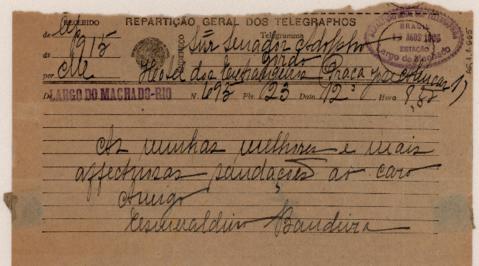 RECEBIDO REPARTIÇÃO GERAL DOS TELEGRAPHOS
de Telegramma
BRASIL
ESTAÇÃO
Largo do Machado
Snr. Senador Adolpho Gordo
ás 1915
por
Hotel dos Estrangeiros (Praça José Alencar 1)
De LARGO DO MACHADO-RIO N. 695 Pls. 23 Data 12 Hora
As minhas melhores e mais
affectuosas saudações ao caro
Amigo
Esmeraldino Bandeira